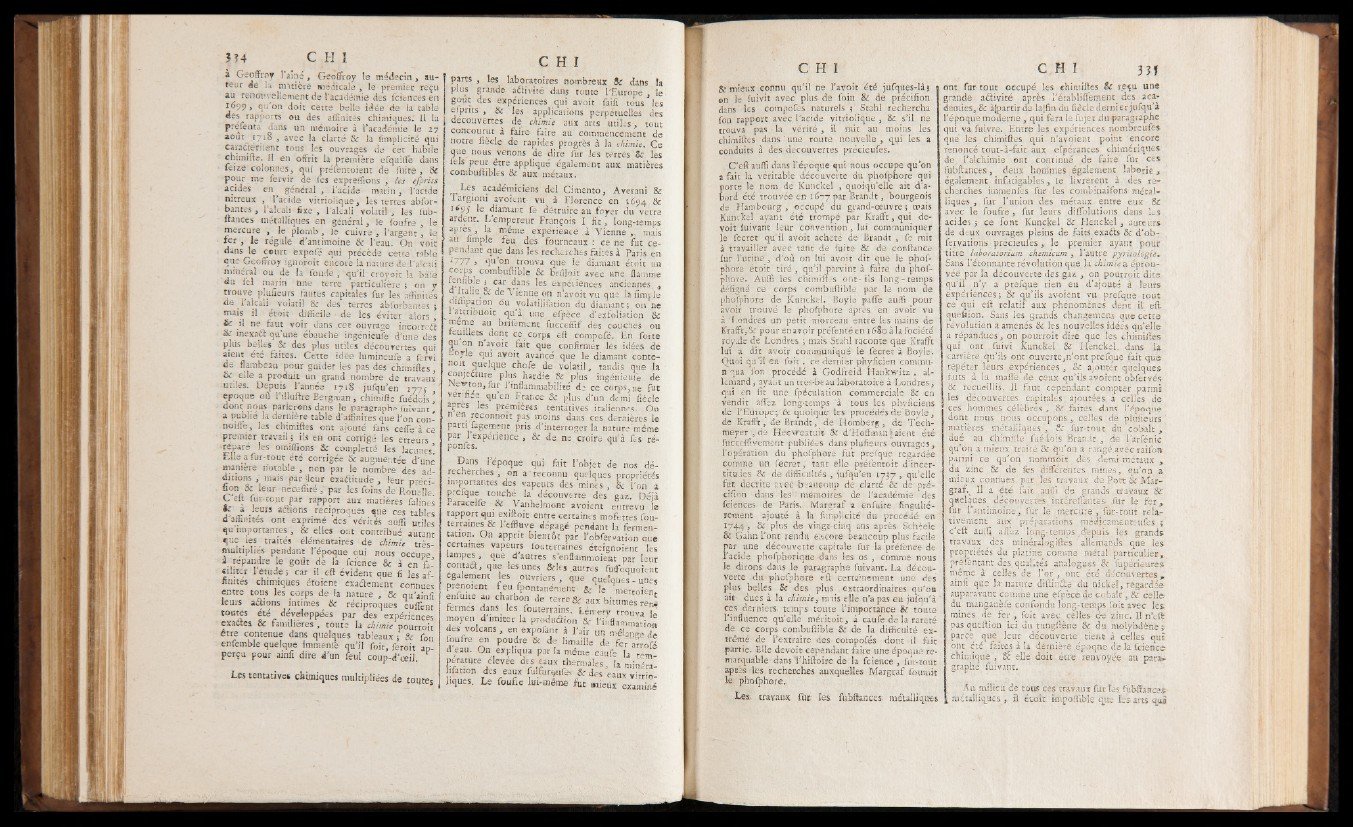 334 C H I
à Geoffroy l'aîné, Geoffroy le médecin, au-
teur de la matière médicale, le premier reçu
au renouvellement de l'académie des sciences en
1699, qu'on doit cette belle idée de la table
des rapports ou des affinités chimiques. Il la
présenta dans un mémoire à l'académie le 27
août 1718, avec la clarté & la simplicité qui
caractérisent tous les ouvrages de cet habile
chimiste. Il en offrit la première esquisse dans
seize colonnes, qui présentoient de suite, &
pour me servir de ses expressions, les esprits
acides en général, l'acide marin, l'acide
nitreux, l'acide vitriolique, les terres absor-
bantes, l'alcali fixe, l'alcali volatil, les sub-
stances métalliques en général, le soufre, le
mercure, le plomb, le cuivre, l'argent, le
fer, le régule d'antimoine & l'eau. On voit
dans le court exposé qui précède cette table
que Geoffroy ignoroit encore la nature de l'alcali
minéral ou de la soude, qu'il croyoit la base
du sel marin une terre particulière; on y
trouve plusieurs fautes capitales sur les affinités
de l'alcali volatil & des terres absorbantes;
mais il étoit difficile de les éviter alors,
& il ne faut voir dans cet ouvrage incorrect
& inexact qu'une ébauche ingénieuse d'une des
plus belles & des plus utiles découvertes qui
aient été faites. Cette idée lumineuse a servi
de flambeau pour guider les pas des chimistes,
& elle a produit un grand nombre de travaux
utiles. Depuis l'année 1718 jusqu'en 1775,
époque où l'illustre Bergman, chimiste suédois,
dont nous parlerons dans le paragraphe suivant,
a publié la dernière table d'affinités que l'on con-
noisse, les chimistes ont ajouté sans cesse à ce
premier travail; ils en ont corrigé les erreurs,
réparé les omissions & complétté les lacunes.
Elle a sur-tout été corrigée & augmentée d'une
manière notable, non par le nombre des ad-
ditions, mais par leur exactitude, leur préci-
sion & leur nécessité, par les soins de Rouelle.
C'est sur-tout par rapport aux matières salines
& à leurs actions réciproques que ces tables
d'affinités ont exprimé des vérités aussi utiles
qu'importantes, & elles ont contribué autant
que les traités élémentaires de chimie très-
multipliés pendant l'époque qui nous occupe,
à répandre le goût de la science & à en fa-
ciliter l'étude; car il est évident que si les af-
finités chimiques étoient exactement connues
entre tous les corps de la nature, & qu'ainsi
leurs actions intimes & réciproques eussent
toutes été développées par des expériences
exactes & familières, toute la chimie pourroit
être contenue dans quelques tableaux; & son
ensemble quelque immense qu'il soit, seroit ap-
perçu pour ainsi dire d'un seul coup-d'œil.
Les tentatives chimiques multipliées de toutes
C H I
parts, les laboratoires nombreux & dans la
plus grande activité dans toute l'Europe, le
goût des expériences qui avoit saisi tous les
esprits, & les applications perpétuelles des
découvertes de chimie aux arts utiles, tout
concourut à faire faire au commencement de
notre siècle de rapides progrès à la chimie. Ce
que nous venons de dire sur les terres & les
sels peut être appliqué également aux matières
combustibles & aux métaux.
Les académiciens del Cimento, Averani &
Targioni avoient vu à Florence en 1694 &
1695 le diamant se détruire au foyer du verre
ardent. L'empereur François I fit, long-temps
après, la même expérience à Vienne, mais
au simple feu des fourneaux: ce ne fut ce-
pendant que dans les recherches faites à Paris en
1777, qu'on trouva que le diamant étoit un
corps combustible & brûloit avec une flamme
sensible; car dans les expériences anciennes,
d'Italie & de Vienne on n'avoit vu que la simple
dissipation ou volatilisation du diamant; on ne
l'attribuoit qu'à une espèce d'exfoliation &
même au brisement successif des couches ou
feuillets dont ce corps est composé. En sorte
qu'on n'avoit fait que confirmer les idées de
Boyle qui avoit avancé que le diamant conte-
noit quelque chose de volatil, tandis que la
conjecture plus hardie & plus ingénieuse de
Newton, sur l'inflammabilité de ce corps, ne fut
vérifiée qu'en France & plus d'un demi siècle
après les premières tentatives italiennes. On
n'en reconnoît pas moins dans ces dernières le
parti sagement pris d'interroger la nature même
par l'expérience, & de ne croire qu'à ses ré-
ponses.
Dans l'époque qui fait l'objet de nos dé-
recherches, on a reconnu quelques propriétés
importantes des vapeurs des mines, & l'on a
presque touché la découverte des gaz. Déjà
Paracelse & Vanhelmont avoient entrevu le
rapport qui existoit entre certaines mofettes sou-
terraines & l'effluve dégagé pendant la fermen-
tation. On apprit bientôt par l'observation que
certaines vapeurs souterraines éteignoient les
lampes, que d'autres s'enflammoient par leur
contact, que les unes & les autres suffoquoient
également les ouvriers, que quelques-unes
prenoient feu spontanément & le mettoient
ensuite au charbon de terre & aux bitumes ren-
fermés dans les souterrains. Lémery trouva le
moyen d'imiter la production & l'inflammation
des volcans, en exposant à l'air un mélange de
soufre en poudre & de limaille de fer arrosé
d'eau. On expliqua par la même cause la tem-
pérature élevée des eaux thermales, la minéra-
lisation des eaux sulfureuses & des eaux vitrio-
liques. Le soufre lui-même fut mieux examiné
C H I
& mieux connu qu'il ne l'avoit été jusques-là;
on le suivit avec plus de soin & de précision
dans les composés naturels; Stahl rechercha
son rapport avec l'acide vitriolique, & s'il ne
trouva pas la vérité, il mit au moins les
chimistes dans une route nouvelle, qui les a
conduits à des découvertes précieuses.
C'est aussi dans l'époque qui nous occupe qu'on
a fait la véritable découverte du phosphore qui
porte le nom de Kunckel, quoiqu'elle ait d'a-
bord été trouvée en 1677 par Brandt, bourgeois
de Hambourg, occupé du grand-œuvre; mais
Kunckel ayant été trompé par Krafft, qui de-
voit suivant leur convention, lui communiquer
le secret qu'il avoit acheté de Brandt, se mit
à travailler avec tant de suite & de constance
sur l'urine, d'où on lui avoit dit que le phos-
phore étoit tiré, qu'il parvint à faire du phos-
phore. Aussi les chimistes ont-ils long-temps
désigné ce corps combustible par le nom de
phosphore de Kunckel. Boyle passe aussi pour
avoir trouvé le phosphore après en avoir vu
à Londres un petit morceau entre les mains de
Krafft, & pour en avoir présenté en 1680 à la société
royale de Londres; mais Stahl raconte que Krafft
lui a dit avoir communiqué le secret à Boyle.
Quoi qu'il en soit, ce dernier physicien commu-
niqua son procédé à Godfreid Hankwitz, al-
lemand, ayant un très-beau laboratoire à Londres,
qui en fit une spéculation commerciale & en
vendit assez long-temps à tous les physiciens
de l'Europe; & quoique les procédés de Boyle,
de Krafft, de Brandt, de Homberg, de Tech-
meyer, de & d'Hoffman aient été
successivement publiées dans plusieurs ouvrages,
l'opération du phosphore fut presque regardée
comme un secret, tant elle présentoit d'incer-
titudes & de difficultés, jusqu'en 1737, qu'elle
fut décrite avec beaucoup de clarté & de pré-
cision dans les mémoires de l'académie des
sciences de Paris. Margraf a ensuite singuliè-
rement ajouté à la simplicité du procédé en
1744, & plus de vingt-cinq ans après Schéele
& Gahn l'ont rendu encore beaucoup plus facile
par une découverte capitale sur la présence de
l'acide phosphorique dans les os, comme nous
le dirons dans le paragraphe suivant. La décou-
verte du phosphore est certainement une des
plus belles & des plus extraordinaires qu'on
ait dues à la chimie, mais elle n'a pas eu jusqu'à
ces derniers temps toute l'importance & toute
l'influence qu'elle méritoit, à cause de la rareté
de ce corps combustible & de la difficulté ex-
trême de l'extraire des composés dont il fait
partie. Elle devoit cependant faire une époque re-
marquable dans l'histoire de la science, sur-tout
après les recherches auxquelles Margraf soumit
le phosphore.
Les travaux sur les substances métalliques
C H I 335
ont sur tout occupé les chimistes & reçu une
grande activité après l'établissement des aca-
démies, & à partir de la fin du siècle dernier jusqu'à
l'époque moderne, qui sera le sujet du paragraphe
qui va suivre. Entre les expériences nombreuses
que les chimistes qui n'avoient point encore
renoncé tout-à-fait aux espérances chimériques
de l'alchimie ont continué de faire sur ces
substances, deux hommes également laborie,
également infatigables, se livrèrent à des re-
cherches immenses sur les combinaisons métal-
liques, sur l'union des métaux entre eux &
avec le soufre, sur leurs dissolutions dans les
acides; ce sont Kunckel & Henckel, auteurs
de deux ouvrages pleins de faits exacts & d'ob-
servations précieuses, le premier ayant pour
titre laboratorium chemicum, l'autre pyritologie.
Sans l'étonnante révolution que la chimie a éprou-
vée par la découverte des gaz, on pourroit dire
qu'il n'y a presque rien eu d'ajouté à leurs
expériences; & qu'ils avoient vu presque tout
ce qui est relatif aux phénomènes dont il est
question. Sans les grands changemens que cette
révolution a amenés & les nouvelles idées qu'elle
a répandues, on pourroit dire que les chimistes
qui ont suivi Kunckel & Henckel, dans la
carrière qu'ils ont ouverte, n'ont presque fait que
répéter leurs expériences, & ajouter quelques
faits à la masse de ceux qu'ils avoient observés
& recueillis. Il faut cependant compter parmi
les découvertes capitales ajoutées à celles de
ces hommes célèbres, & faites dans l'époque
dont nous nous occupons, celles de plusieurs
matières métalliques, & sur-tout du cobalt,
dûe au chimiste suédois Brandt, de l'arsenic
qu'on a mieux traité & qu'on a rangé avec raison
parmi ce qu'on nommoit des demi-métaux,
du zinc & de ses différentes mines, qu'on a
mieux connues par les travaux de Pott & Mar-
graf. Il a été fait aussi de grands travaux &
quelques découvertes intéressantes sur le fer,
sur l'antimoine, sur le mercure, sur-tout rela-
tivement aux préparations médicamenteuses;
c'est aussi assez long-temps depuis les grands
travaux des minéralogistes allemands que les
propriétés du platine comme métal particulier,
présentant des qualités analogues & supérieures
même à celles de l'or, ont été découvertes,
ainsi que la nature difficile du nickel, regardée
auparavant comme une espèce de cobalt, & celle
du manganèse confondu long-temps soit avec les
mines de fer, soit avec celles de zinc. Il n'est
pas question ici du tungstène & du molybdène;
parce que leur découverte tient à celles qui
ont été faites à la dernière époque de la science
chimique, & elle doit être renvoyée au para-
graphe suivant.
Au milieu de tous ces travaux sur les substances
métalliques, il étoit impossible que les arts qui